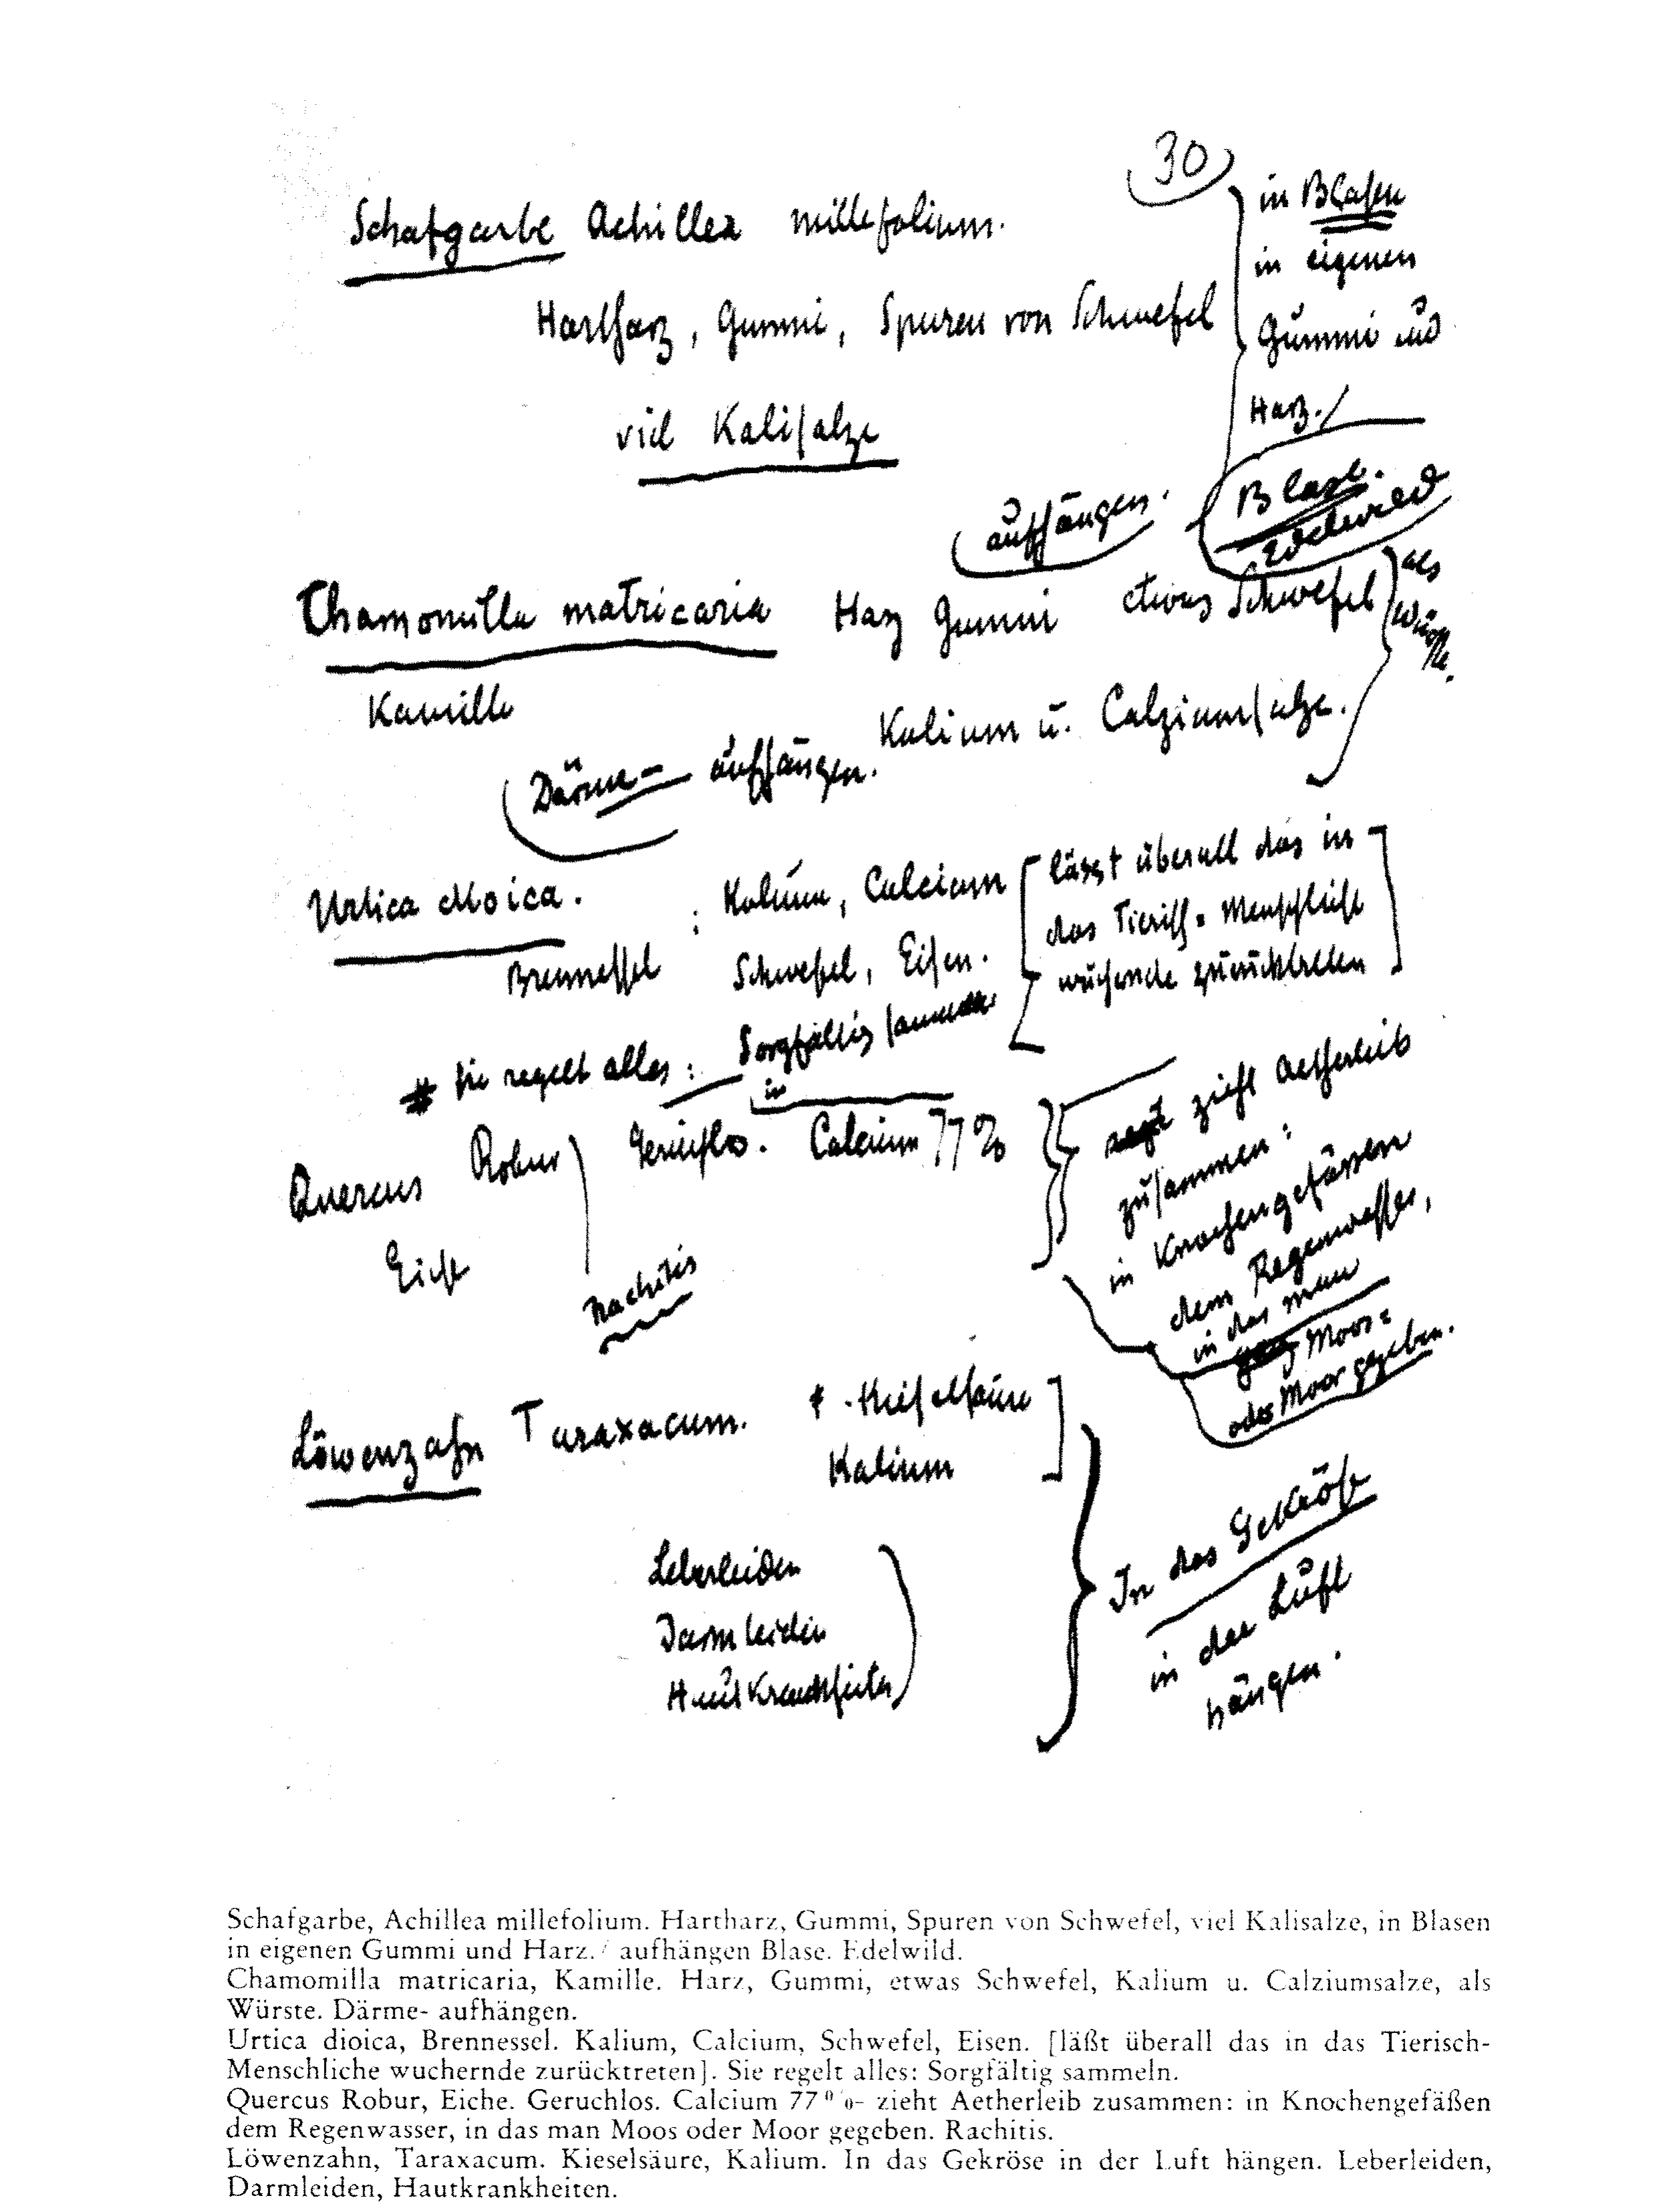 30
Schafgarbe Achillea millefolium.
Hartharz, Gummi, Spuren von Schwefel
viel Kalisalze
in Blasen
in eigenen
Gummi und
Harz./
aufhängen.
Blase.
Edelwild
Chamomilla matricaria Harz Gummi etwas Schwefel
als
Würste.
Kamille
Kalium u. Calziumsalze.
Därme- aufhängen.
Urtica dioica. : Kalium, Calcium
Brennessel Schwefel, Eisen.
[lässt überall das in
das Tierisch= Menschliche
wuchernde zurücktreten]
Sie regelt alles: Sorgfältig sammeln
in
Quercus Robur Geruchlos. Calcium 77%
Eiche
Rachitis
zieht Aetherleib
zusammen:
in Knochengefässen
dem Regenwasser,
in das man
Moos=
oder Moor gegeben.
Löwenzahn Taraxacum. Kieselsäure
Kalium
Leberleiden
Darmleiden
Hautkrankheiten
In das Gekröse
in der Luft
hängen.
Schafgarbe, Achillea millefolium. Hartharz, Gummi, Spuren von Schwefel, viel Kalisalze, in Blasen
in eigenen Gummi und Harz./ aufhängen Blase. Edelwild.
Chamomilla matricaria, Kamille. Harz, Gummi, etwas Schwefel, Kalium u. Calziumsalze, als
Würste. Därme- aufhängen.
Urtica dioica, Brennessel. Kalium, Calcium, Schwefel, Eisen. [läßt überall das in das Tierisch-
Menschliche wuchernde zurücktreten]. Sie regelt alles: Sorgfältig sammeln.
Quercus Robur, Eiche. Geruchlos. Calcium 77%- zieht Aetherleib zusammen: in Knochengefäßen
dem Regenwasser, in das man Moos oder Moor gegeben. Rachitis.
Löwenzahn, Taraxacum. Kieselsäure, Kalium. In das Gekröse in der Luft hängen. Leberleiden,
Darmleiden, Hautkrankheiten.